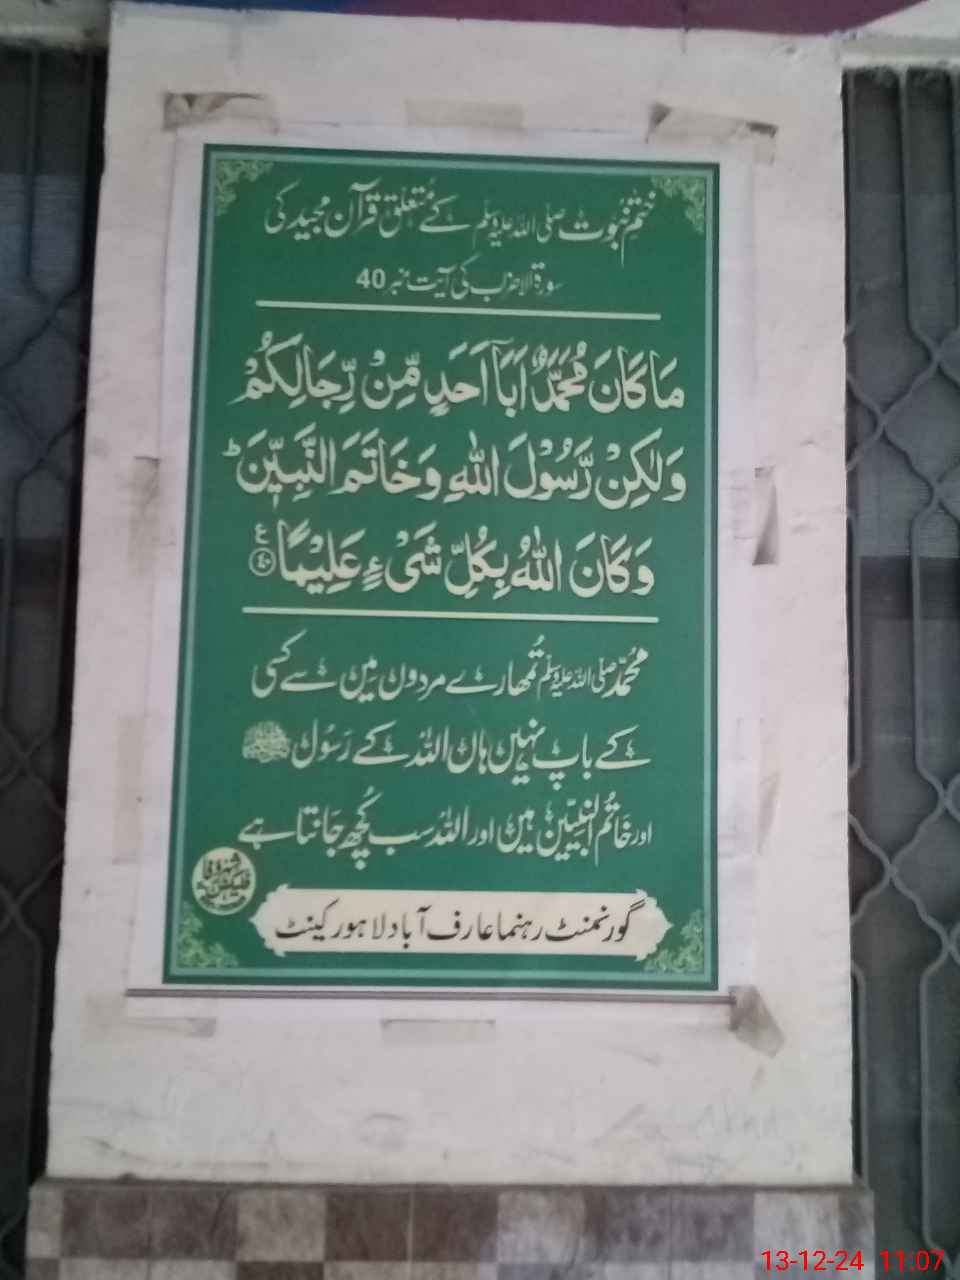 ختمِ نبوت صلی اللہ علیہ وسلم کے مُتعلق قرآن مجید کی
سورۃ الاحزاب کی آیت نمبر 40
مَا كَانَ مُحَمَّدٌ اَبَآ اَحَدٍ مِّنْ رِّجَالِكُمْ
وَلٰكِنْ رَّسُوْلَ اللّٰهِ وَخَاتَمَ النَّبِيّٖنَ ؕ
وَكَانَ اللّٰهُ بِكُلِّ شَیْءٍ عَلِيْمًا ۴۰ ع
مُحمّد صلی اللہ علیہ وسلم تُمھارے مردوں میں سے کسی
کے باپ نہیں ہاں اللہ کے رَسُول ﷺ
اور خَاتمُ النبیّین ہیں اور اللہ سب کُچھ جَانتا ہے
گورنمنٹ رہنما عارف آباد لاہور کینٹ
13-12-24 11:07